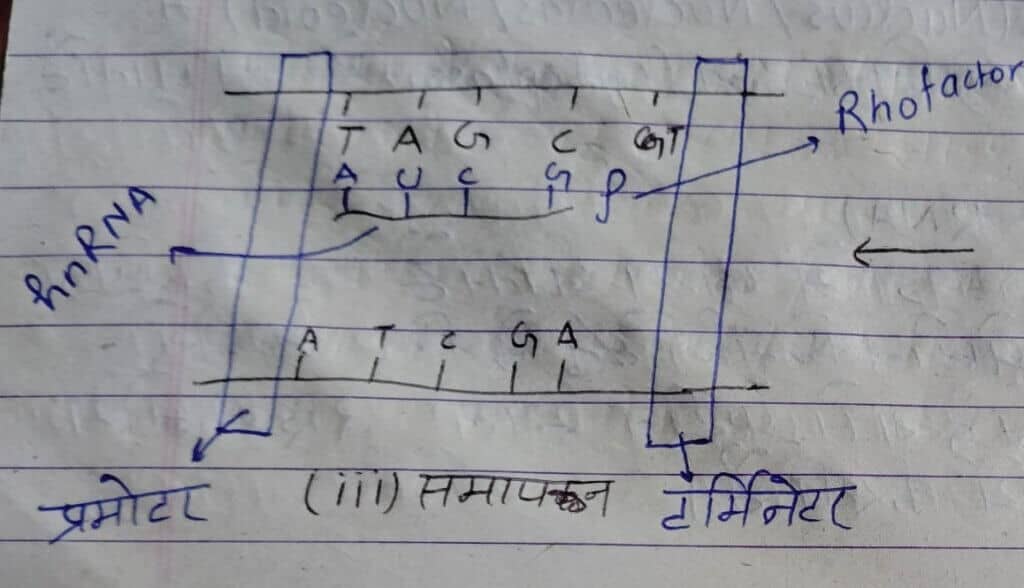 Rhofactor
T A G C GT
A U C G ρ
hnRNA
A T C G A
प्रमोटर (iii) समापन टर्मिनेटर